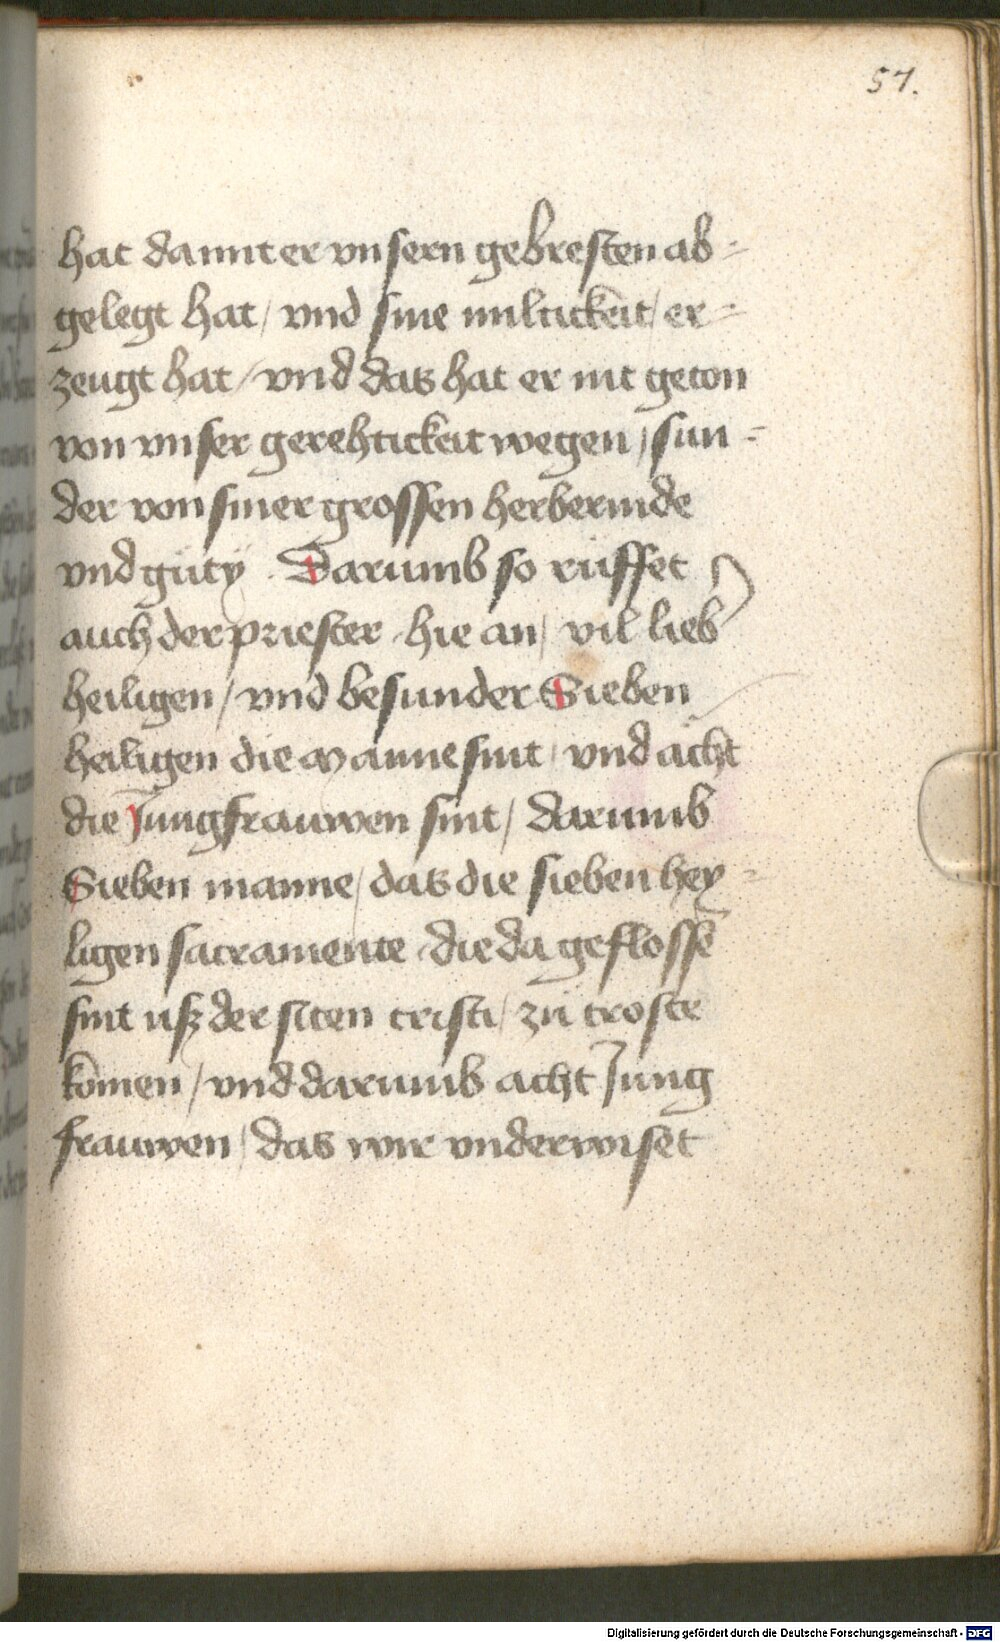 57.
hat damit er vnsern gebresten ab-
gelegt hat / vnd sine miltickeit / er-
zeugt hat / vnd das hat er nit geton
von vnser gerehtickeit wegen / sun-
der von siner grossen herbermde
vnd güty . Darumb so rüffet
auch der priester hie an / vil lieb
heiligen / vnd besunder Sieben
heiligen die Manne sint / vnd acht
die Jungfrauwen sint / darumb
Sieben manne / das die sieben hey-
ligen sacramente / die da geflossē
sint usz der siten cristi / zü troste
komen / vnd darumb acht Jung
frauwen / das wir vnderwiset
Digitalisierung gefördert durch die Deutsche Forschungsgemeinschaft - DFG